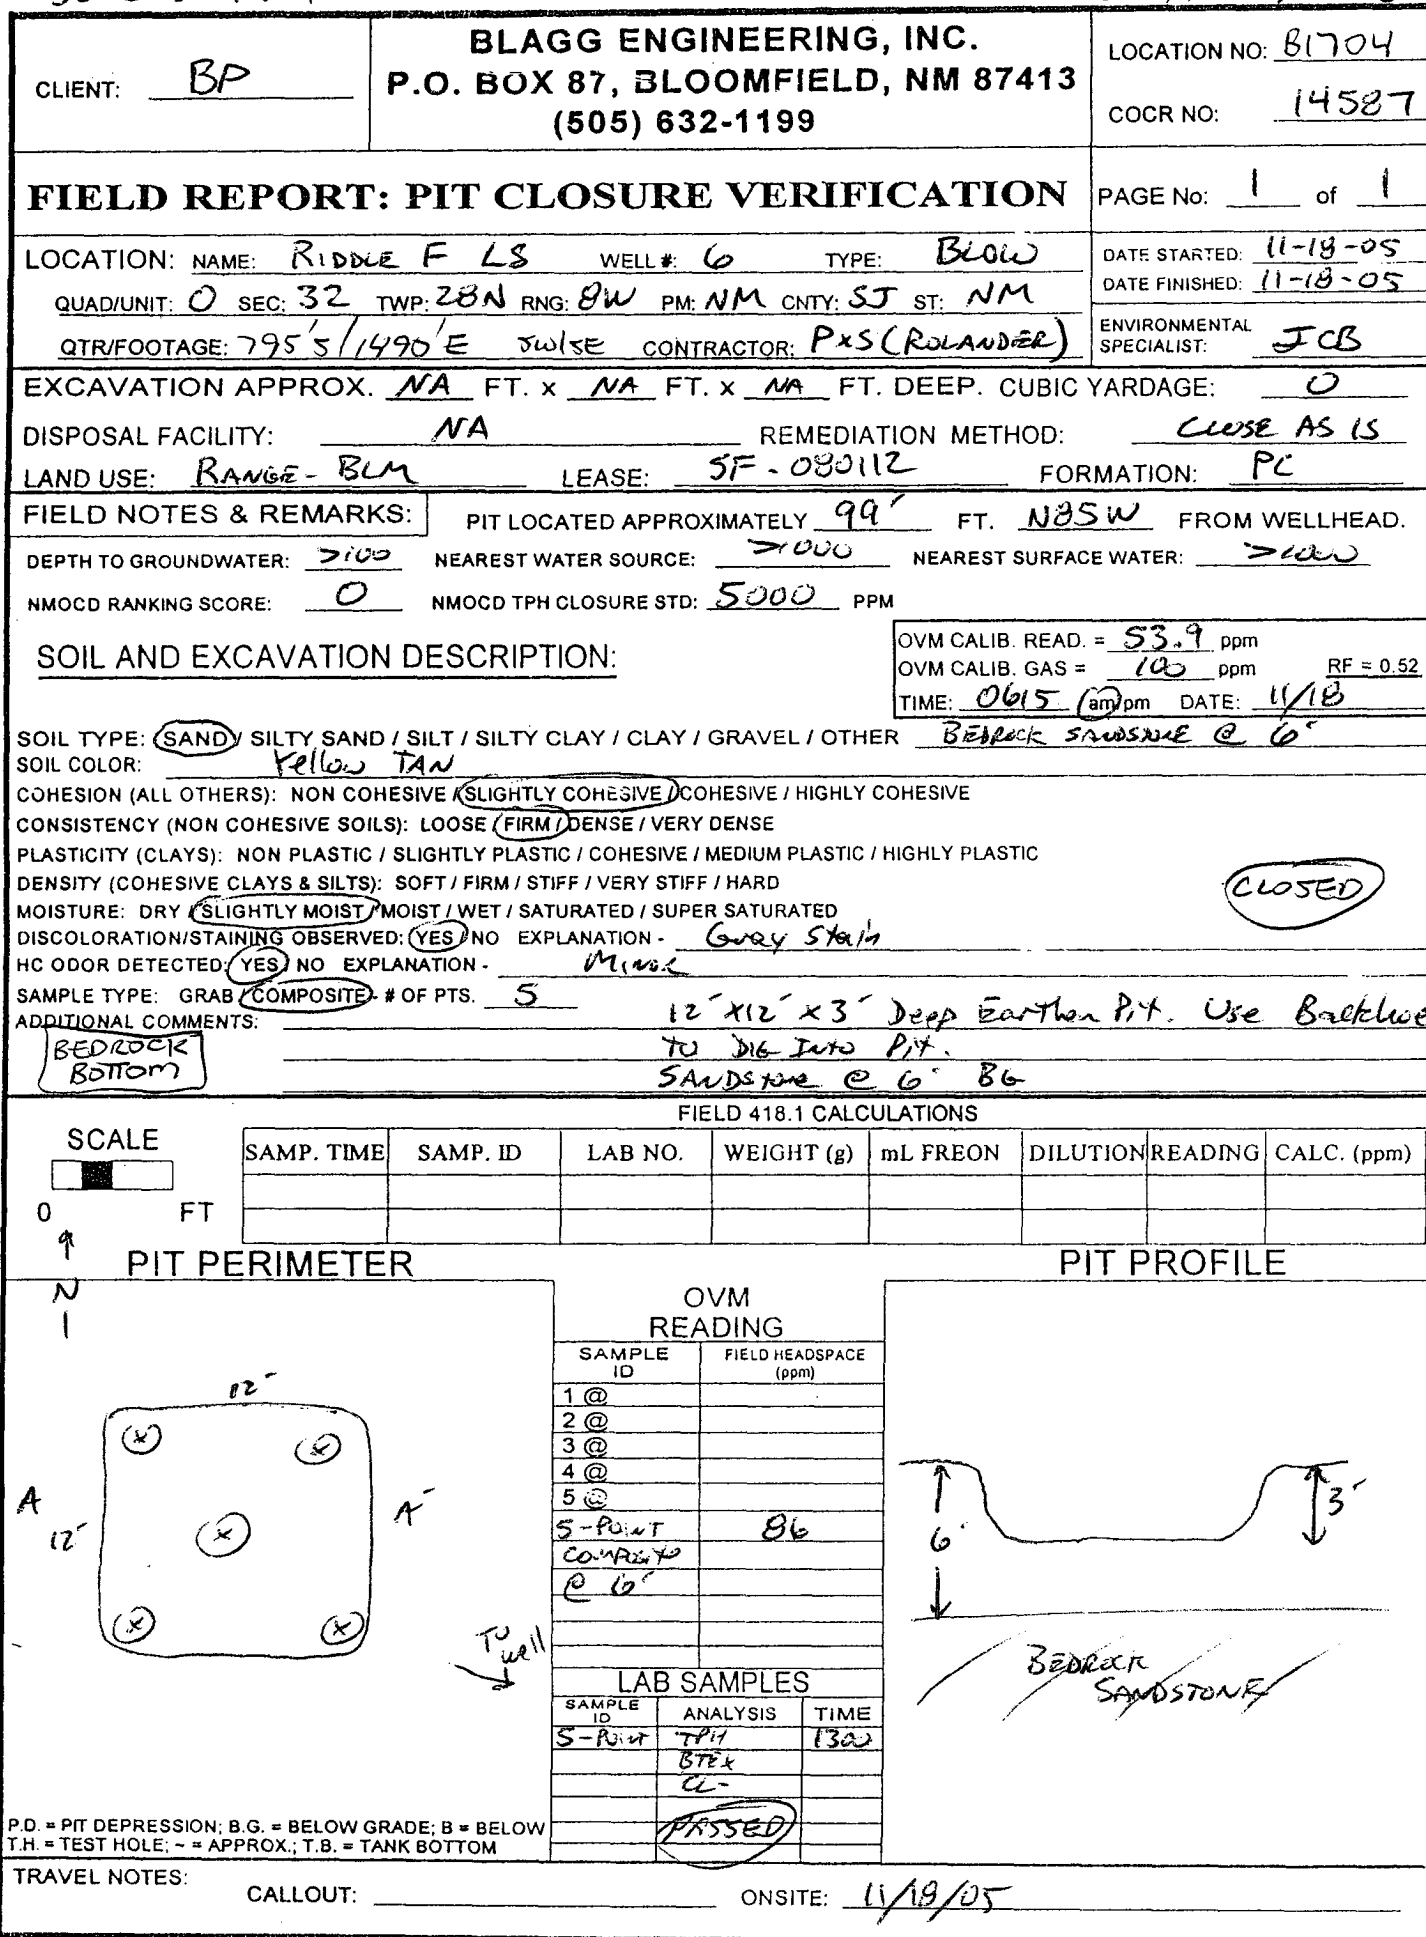 BLAGG ENGINEERING, INC.
P.O. BOX 87, BLOOMFIELD, NM 87413
(505) 632-1199
CLIENT: BP
LOCATION NO: B1704
COCR NO: 14587
FIELD REPORT: PIT CLOSURE VERIFICATION
PAGE No: 1 of 1
LOCATION: NAME: RIDDLE F LS WELL #: 6 TYPE: BLOW
QUAD/UNIT: O SEC: 32 TWP: 28N RNG: 8W PM: NM CNTY: SJ ST: NM
QTR/FOOTAGE: 795'S/1490'E SW/SE CONTRACTOR: P&S (ROLANDER)
DATE STARTED: 11-18-05
DATE FINISHED: 11-18-05
ENVIRONMENTAL SPECIALIST: JCB
EXCAVATION APPROX. NA FT. x NA FT. x NA FT. DEEP. CUBIC YARDAGE: 0
DISPOSAL FACILITY: NA REMEDIATION METHOD: CLOSE AS IS
LAND USE: RANGE - BLM LEASE: SF-080112 FORMATION: PC
FIELD NOTES & REMARKS: PIT LOCATED APPROXIMATELY 99' FT. N85W FROM WELLHEAD.
DEPTH TO GROUNDWATER: >100 NEAREST WATER SOURCE: >1000 NEAREST SURFACE WATER: >1000
NMOCD RANKING SCORE: 0 NMOCD TPH CLOSURE STD: 5000 PPM
SOIL AND EXCAVATION DESCRIPTION:
OVM CALIB. READ. = 53.9 ppm
OVM CALIB. GAS = 100 ppm RF = 0.52
TIME: 0615 am/pm DATE: 11/18
SOIL TYPE: SAND / SILTY SAND / SILT / SILTY CLAY / CLAY / GRAVEL / OTHER BEDROCK SANDSTONE @ 6'
SOIL COLOR: Yellow TAN
COHESION (ALL OTHERS): NON COHESIVE / SLIGHTLY COHESIVE / COHESIVE / HIGHLY COHESIVE
CONSISTENCY (NON COHESIVE SOILS): LOOSE / FIRM / DENSE / VERY DENSE
PLASTICITY (CLAYS): NON PLASTIC / SLIGHTLY PLASTIC / COHESIVE / MEDIUM PLASTIC / HIGHLY PLASTIC
DENSITY (COHESIVE CLAYS & SILTS): SOFT / FIRM / STIFF / VERY STIFF / HARD
CLOSED
MOISTURE: DRY / SLIGHTLY MOIST / MOIST / WET / SATURATED / SUPER SATURATED
DISCOLORATION/STAINING OBSERVED: YES / NO EXPLANATION - Gray Stain
HC ODOR DETECTED: YES / NO EXPLANATION - MINOR
SAMPLE TYPE: GRAB / COMPOSITE - # OF PTS. 5
ADDITIONAL COMMENTS: 12' x 12' x 3' Deep Earthen Pit. Use Backhoe
TO DIG INTO Pit.
SANDSTONE @ 6' BG
BEDROCK
BOTTOM
FIELD 418.1 CALCULATIONS
SCALE
0 FT
SAMP. TIME SAMP. ID LAB NO. WEIGHT (g) mL FREON DILUTION READING CALC. (ppm)
PIT PERIMETER
PIT PROFILE
N
12'
A
12'
A'
To well
OVM
READING
SAMPLE ID FIELD HEADSPACE (ppm)
1 @
2 @
3 @
4 @
5 @
5-POINT 86
COMPOSITE
@ 6'
LAB SAMPLES
SAMPLE ID ANALYSIS TIME
5-Point TPH 1300
BTEX
CL-
PASSED
6'
3'
BEDROCK
SANDSTONE
P.D. = PIT DEPRESSION; B.G. = BELOW GRADE; B = BELOW
T.H. = TEST HOLE; ~ = APPROX.; T.B. = TANK BOTTOM
TRAVEL NOTES:
CALLOUT: ONSITE: 11/18/05